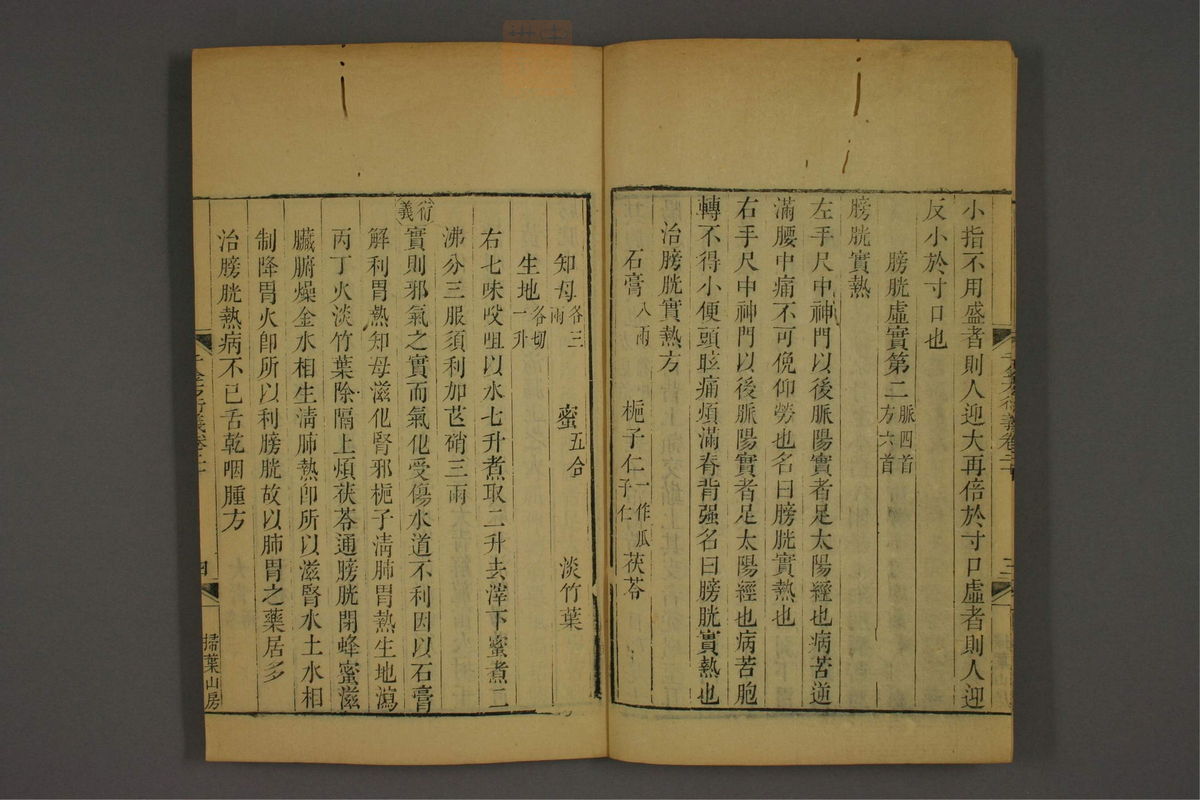 小指不用盛者則人迎大再倍於寸口虛者則人迎
反小於寸口也
膀胱虛實第二 脈四首 方六首
膀胱實熱
左手尺中神門以後脈陽實者足太陽經也病苦逆
滿腰中痛不可俛仰勞也名曰膀胱實熱也
右手尺中神門以後脈陽實者足太陽經也病苦胞
轉不得小便頭眩痛煩滿脊背强名曰膀胱實熱也
治膀胱實熱方
石膏八兩 梔子仁一作瓜子仁 茯苓
知母各三兩 蜜五合 淡竹葉
生地各切一升
右七味㕮咀以水七升煮取二升去滓下蜜煮二
沸分三服須利加芒硝三兩
衍義 實則邪氣之實而氣化受傷水道不利因以石膏
解利胃熱知母滋化腎邪梔子清肺胃熱生地瀉
丙丁火淡竹葉除隔上煩茯苓通膀胱閉蜂蜜滋
臟腑燥金水相生清肺熱卽所以滋腎水土水相
制降胃火卽所以利膀胱故以肺胃之藥居多
治膀胱熱病不已舌乾咽腫方
四
掃葉山房